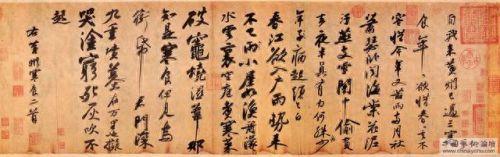 自我來黃州已過三寒
食年年欲惜春春去不
容惜今年又苦雨兩月秋
蕭瑟卧聞海棠花泥
汙燕支雪闇中偷負
去夜半真有力何殊少
年子病起頭已白
春江欲入戶雨勢來
不已雨小屋如漁舟濛濛
水雲裏空庖煮寒菜
破竈燒濕葦那
知是寒食但見烏
銜帋君門深
九重墳墓在万里也擬
哭塗窮死灰吹不
起
右黃州寒食二首